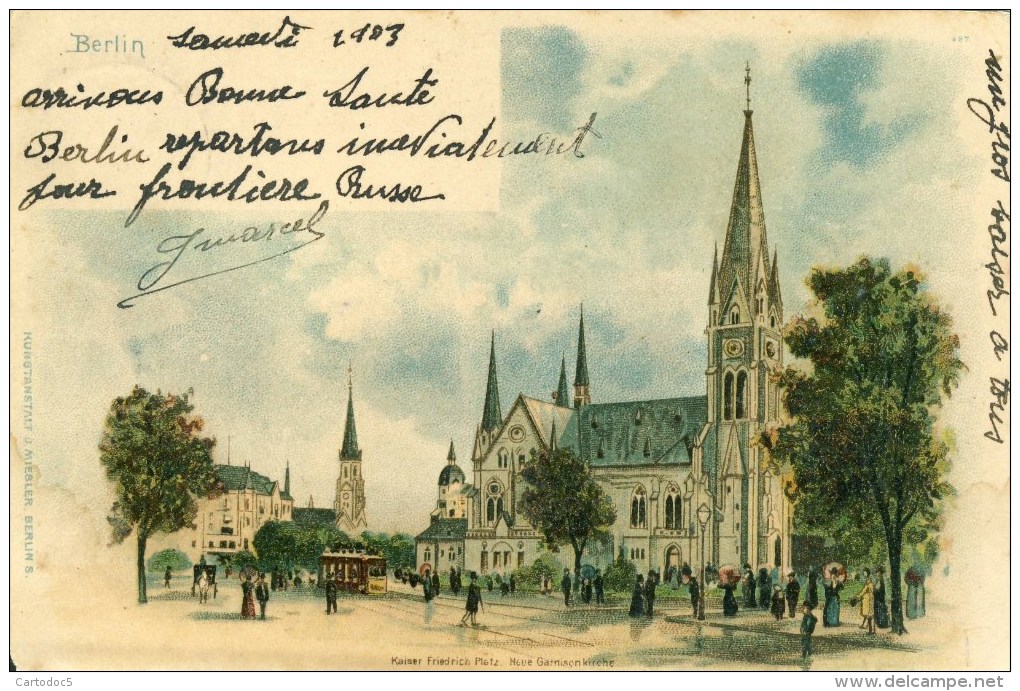 Berlin
Samedi 1903
arrivons Bonne Santé
Berlin repartons inediatement
pour frontiere Russe
J marcel
gros baiser a tous
KUNSTANSTALT J. MIESLER, BERLIN S.
Kaiser Friedrich Platz. Neue Garnisonkirche
Cartodoc5
http://www.delcampe.net